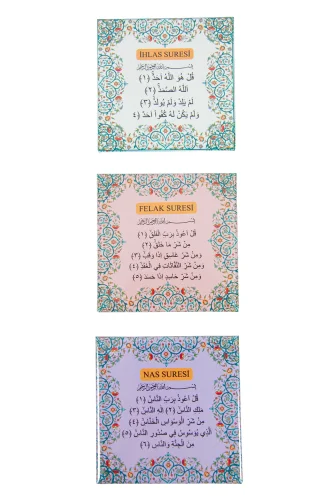 İHLAS SURESİ
بِسْمِ اللهِ الرَّحْمٰنِ الرَّحِيمِ
قُلْ هُوَ اللَّهُ اَحَدٌ (١)
اَللَّهُ الصَّمَدُ (٢)
لَمْ يَلِدْ وَلَمْ يُولَدْ (٣)
وَلَمْ يَكُنْ لَهُ كُفُواً اَحَدٌ (٤
FELAK SURESİ
بِسْمِ اللهِ الرَّحْمٰنِ الرَّحِيمِ
قُلْ اَعُوذُ بِرَبِّ الْفَلَقِ (١)
مِنْ شَرِّ مَا خَلَقَ (٢)
وَمِنْ شَرِّ غَاسِقٍ اِذَا وَقَبَ (٣)
وَمِنْ شَرِّ النَّفَّاثَاتِ فِي الْعُقَدِ (٤)
وَمِنْ شَرِّ حَاسِدٍ اِذَا حَسَدَ (٥)
NAS SURESİ
بِسْمِ اللهِ الرَّحْمٰنِ الرَّحِيمِ
قُلْ اَعُوذُ بِرَبِّ النَّاسِ (١)
مَلِكِ النَّاسِ (٢) اِلٰهِ النَّاسِ (٣)
مِنْ شَرِّ الْوَسْوَاسِ الْخَنَّاسِ (٤)
اَلَّذِي يُوَسْوِسُ فِي صُدُورِ النَّاسِ (٥)
مِنَ الْجِنَّةِ وَالنَّاسِ (٦)